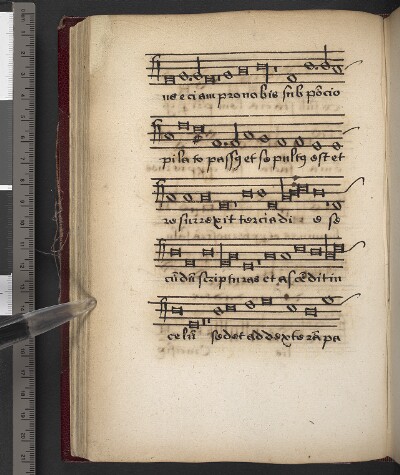 us eciam pro nobis sub pōcio
pilato passꝰ et sepultꝰ est et
resurrexit tercia die se
cūdū scripturas et ascēdit in
celū sedet ad dexterā pa